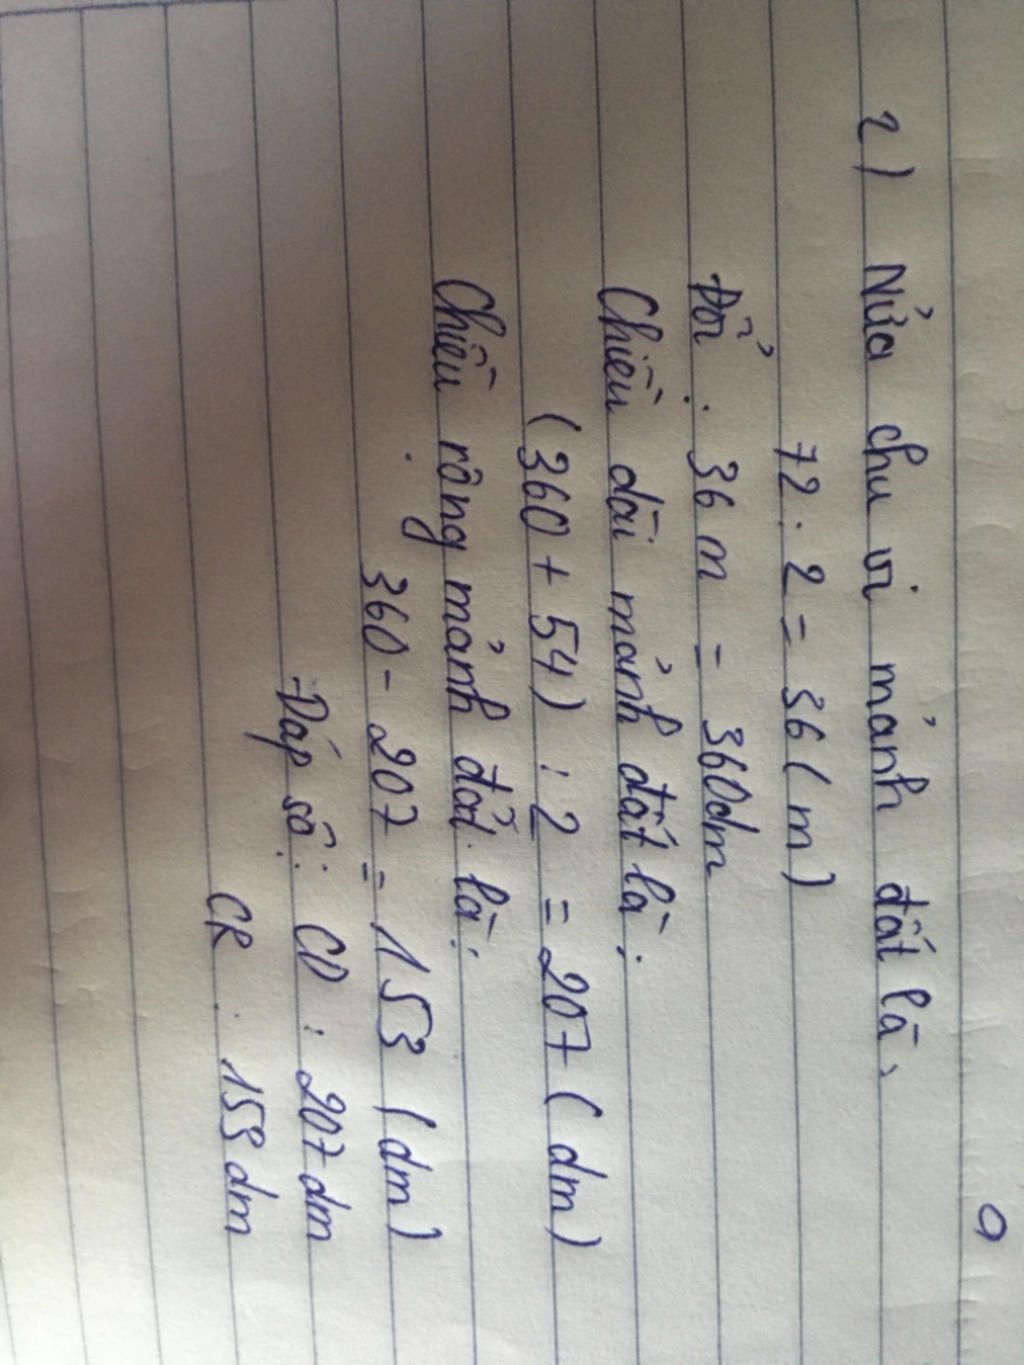 2) Nửa chu vi mảnh đất là:
72 : 2 = 36 (m)
Đổi : 36 m = 360dm
Chiều dài mảnh đất là :
(360 + 54) : 2 = 207 (dm)
Chiều rộng mảnh đất là :
360 - 207 = 153 (dm)
Đáp số : CD : 207 dm
CR : 153 dm